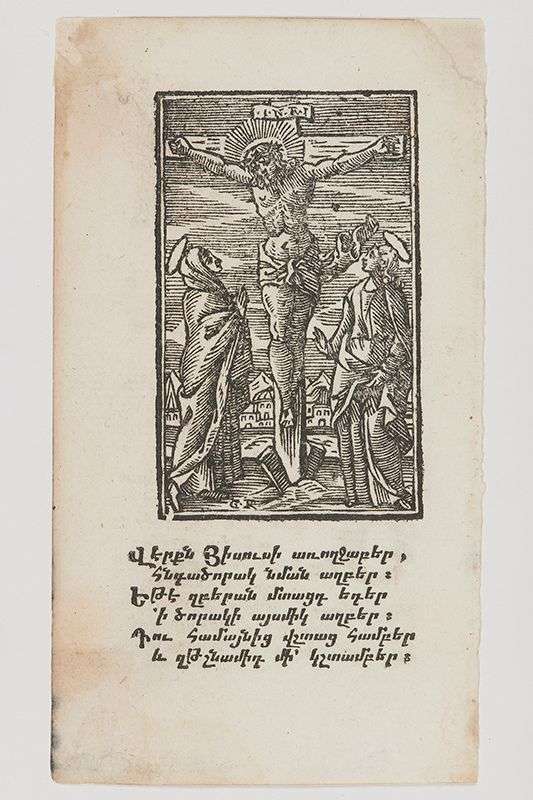 I.N.R.I
G.R
Վէրքն Յիսուսի առողջաբեր,
Հնգածորակ նման աղբեր։
Եթէ զբերան մտացդ եդեր
՚ի ծորակի այսմիկ աղբեր։
Դու համայնից վշտաց համբեր
և զթշնամիդ մի՛ կշտամբեր։